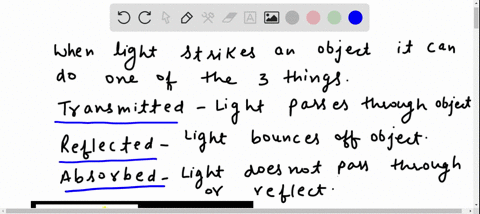 When light strikes an object it can
do one of the 3 things.
Transmitted - Light passes through object
Reflected - Light bounces off object.
Absorbed - Light does not pass through
or reflect.